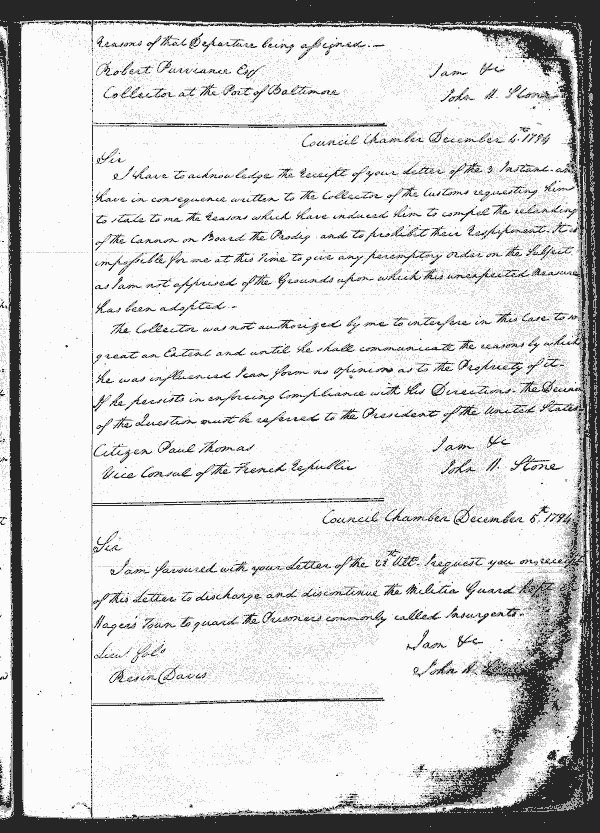 Reasons of that Departure being assigned.—
Robert Purviance Esqr
I am &c
Collector at the Port of Baltimore
John H. Stone
Council Chamber December 4th 1794
Sir
I have to acknowledge the Receipt of your Letter of the 3 Instant and
have in consequence written to the Collector of the Customs requesting him
to state to me the Reasons which have induced him to compel the relanding
of the Cannon on Board the Prodig and to prohibit their Reshipment. It is
impossible for me at this Time to give any peremptory order on the Subject
as I am not apprised of the Grounds upon which this unexpected Measure
has been adopted.-
The Collector was not authorized by me to interfere in this Case to so
great an Extent and until he shall communicate the reasons by which
he was influenced I can form no opinion as to the Propriety of it.-
If he persists in enforcing Compliance with his Directions- the Decision
of the Question must be referred to the President of the United States.
Citizen Paul Thomas
I am &c
Vice Consul of the French Republic
John H. Stone
Council Chamber December 5th 1794
Sir
I am favoured with your Letter of the Ult. I request you on receipt
of this Letter to discharge and discontinue the Militia Guard kept
Hager's Town to guard the Prisoners commonly called Insurgents.
I am &c
Lieut Colo
John H.
Resin Davis